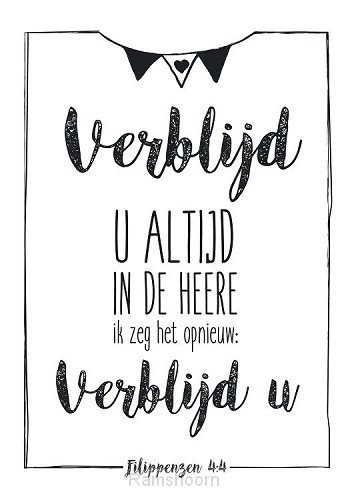 Verblijd
U ALTIJD
IN DE HEERE
ik zeg het opnieuw:
Verblijd u
Filippenzen 4:4
Ramshoorn